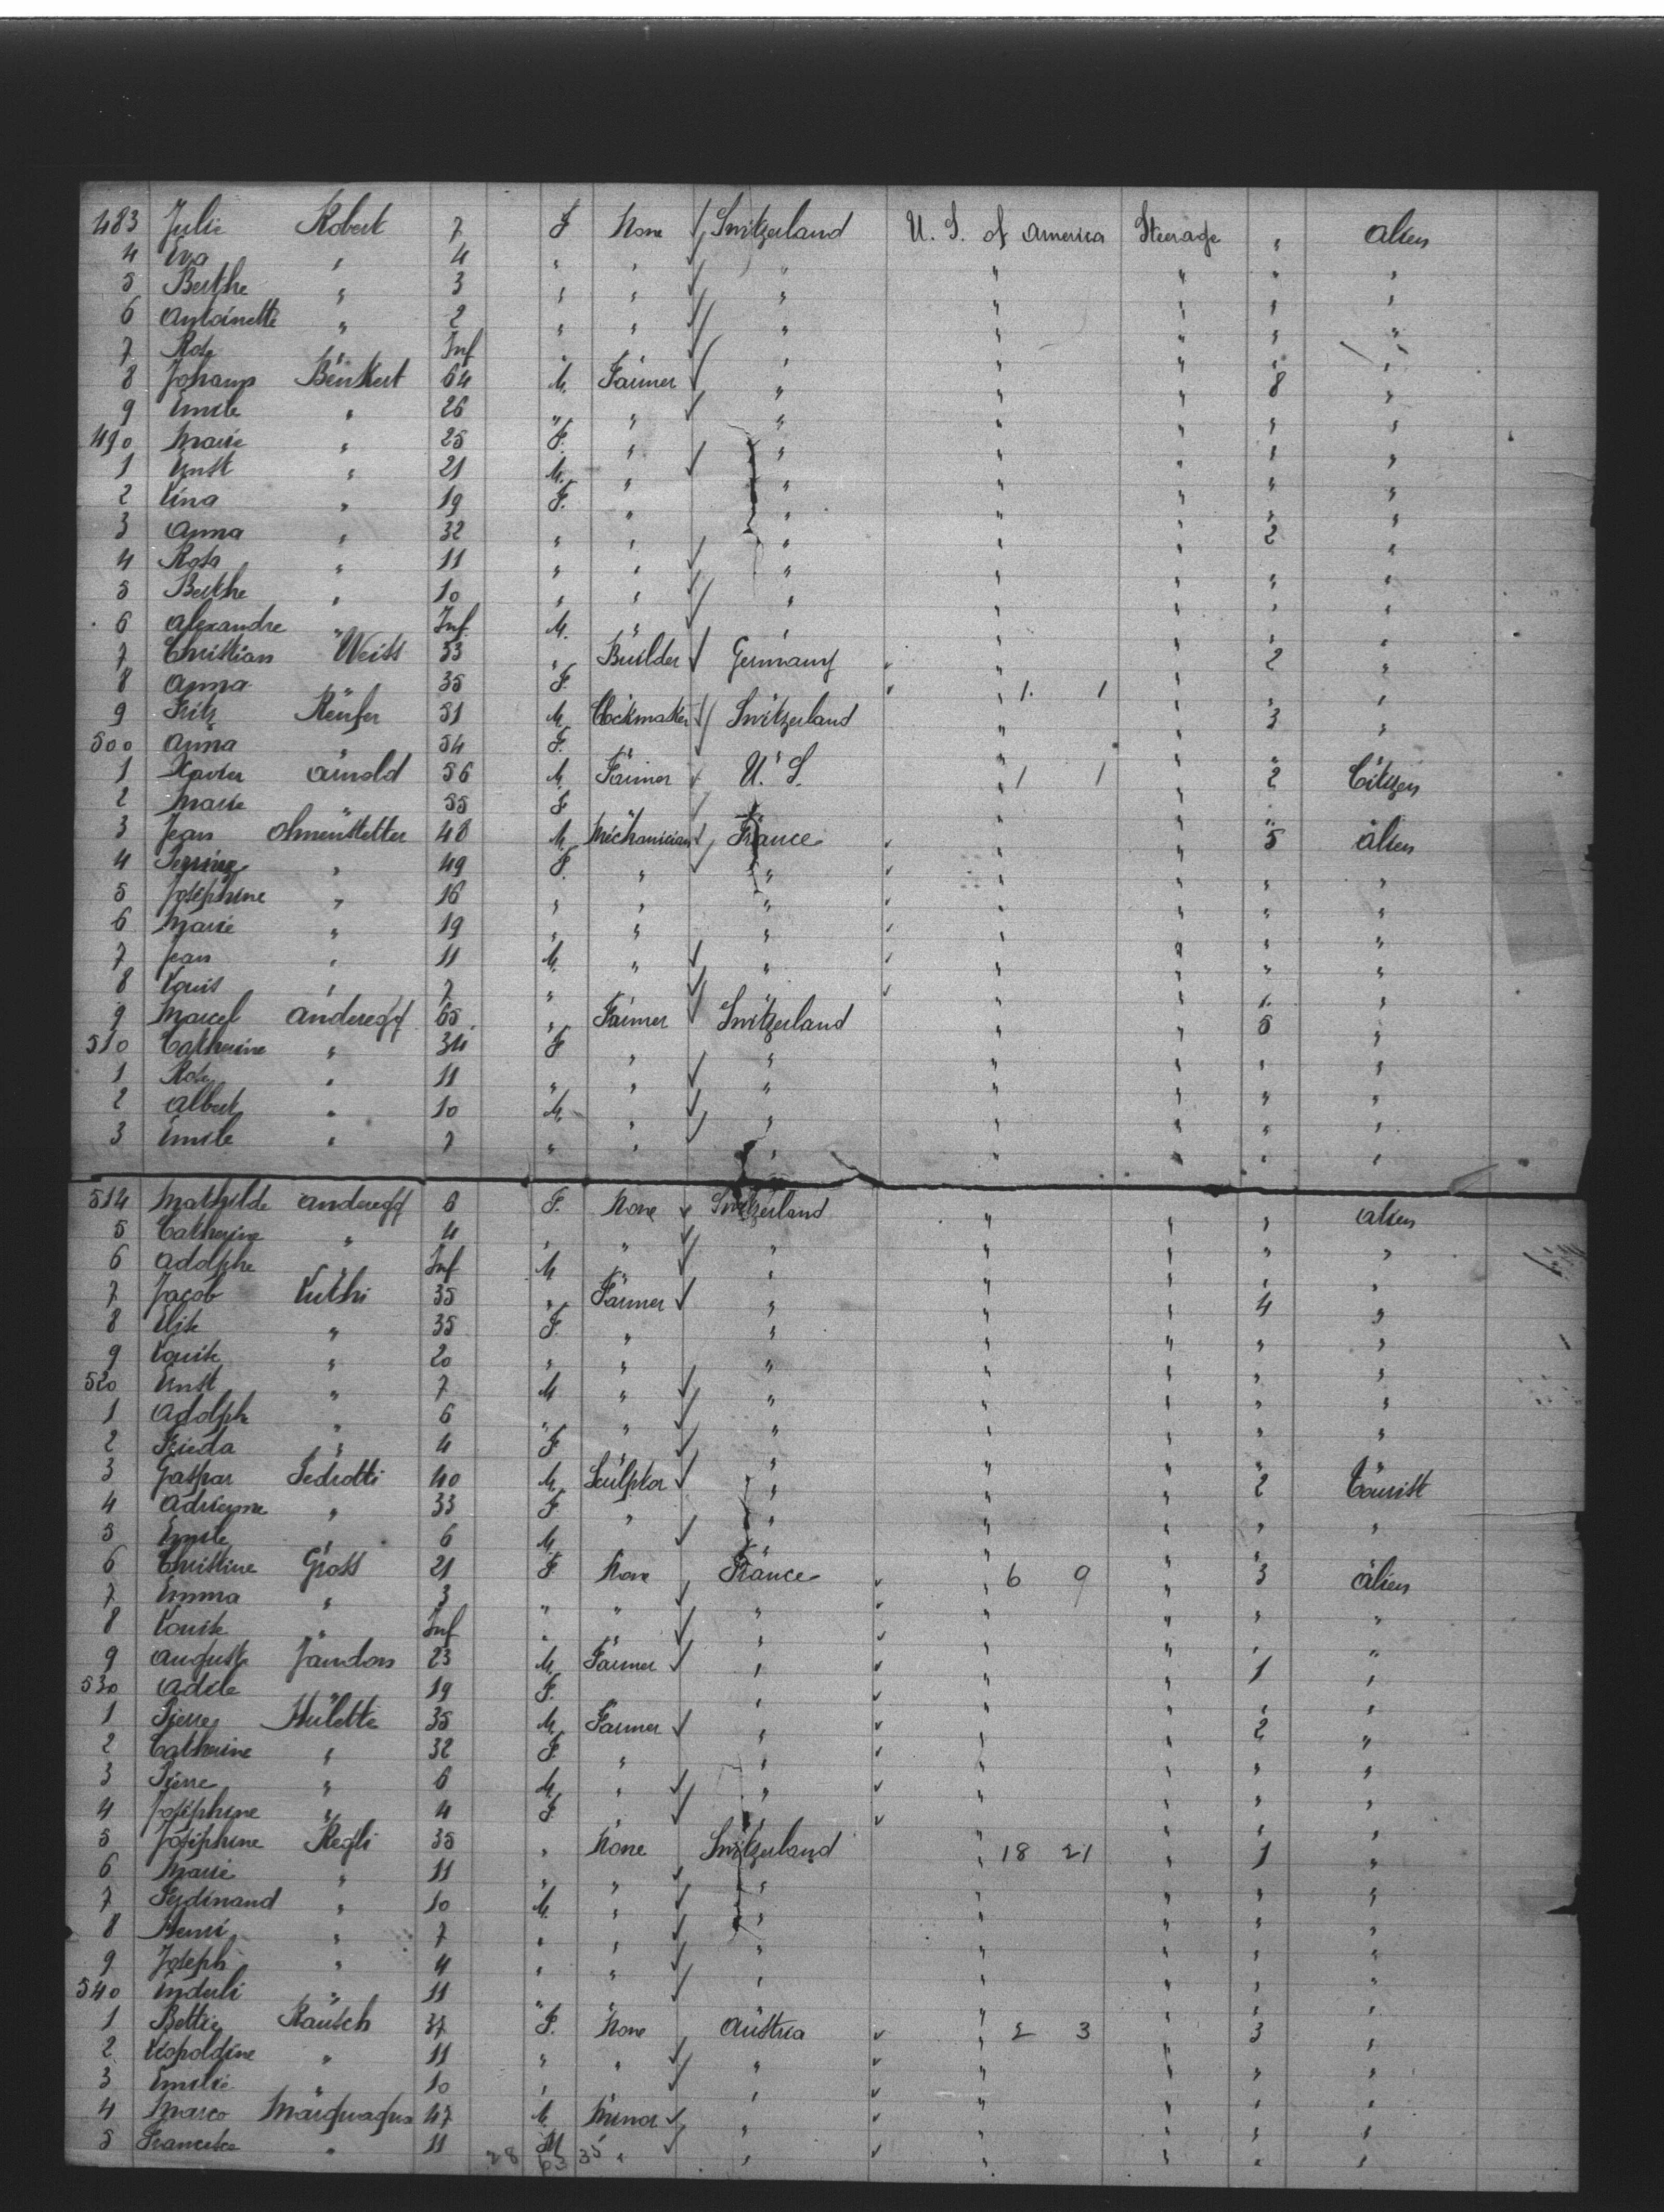 483 Julie Robert 7 F None Switzerland U. S. of America Steerage " alien
4 Eva " 4 " " " " " " "
5 Berthe " 3 " " " " " " "
6 Antoinette " 2 " " " " " " "
7 Rosa " Inf " " " " " "
8 Johann Benkert 64 M. Farmer " " " 8 "
9 Emile " 26 " " " " " " "
490 Marie " 25 F. " " " " " "
1 Ernst " 21 M. " " " " " "
2 Lina " 19 F. " " " " " "
3 Anna " 32 " " " " " 2 "
4 Rosa " 11 " " " " " " "
5 Berthe " 10 " " " " " " "
6 Alexandre " Inf M. " " " " " "
7 Christian Weiss 33 " Builder Germany " " 2 "
8 Anna 35 F. " 1. 1 " "
9 Fritz Reufer 51 M. Clockmaker Switzerland " " 3 "
500 Anna " 54 F. " " " "
1 Xavier Arnold 56 M. Farmer U. S. " 1 1 " 2 Citizen
2 Marie " 55 F " " " "
3 Jean Ohmenstetter 48 M. Mechanician France " " 5 alien
4 " 49 F. " " " " " "
5 Joséphine " 16 " " " " " " "
6 Marie " 19 " " " " " " "
7 Jean " 11 M. " " " " " "
8 Louis " 7 " " " " " "
9 Marcel Anderegg 65 " Farmer Switzerland " " 5 "
510 Catherine " 34 F " " " " " "
1 Rosa " 11 " " " " " " "
2 Albert " 10 M. " " " " " "
3 Emile " 7 " " " " " " "
514 Mathilde Anderegg 8 F. None Switzerland " " " alien
5 Catherine " 4 " " " " " " "
6 Adolphe " Inf M " " " " " "
7 Jacob Luthi 35 " Farmer " " " 4 "
8 Elise " 35 F. " " " " " "
9 Louise " 20 " " " " " " "
520 Ernst " 7 M " " " " " "
1 Adolphe " 6 " " " " " " "
2 Frieda " 4 F " " " " " "
3 Gaspar Pedrotti 40 M. Sculptor " " " 2 Tourist
4 Adrienne " 33 F. " " " " " "
5 Emile " 6 M. " " " " "
6 Christine Gross 21 F. None France " 6 9 " 3 alien
7 Emma " 3 " " " " " " "
8 Louise " Inf " " " " " " "
9 Auguste Jandon 23 M. Farmer " " " 1 "
530 Adele 19 F. " " " " "
1 Pierre Hulette 35 M. Farmer " " " 2 "
2 Catherine " 32 F. " " " " " "
3 Pierre " 6 M. " " " " " "
4 Joséphine " 4 F. " " " " " "
5 Joséphine Regli 35 " None Switzerland " 18 21 " 1 "
6 Marie " 11 " " " " " " "
7 Ferdinand " 10 M. " " " " " "
8 Henri " 7 " " " " " " "
9 Joseph " 4 " " " " " " "
540 " 11 " " " " " "
1 Bettie Rausch 37 F. None Austria " 2 3 " 3 "
2 Leopoldine " 11 " " " " " " "
3 Emilie " 10 " " " " " " "
4 Marco 47 M. Minor " " " " "
5 Francisca " 11 M " " " " " "
28 63 35